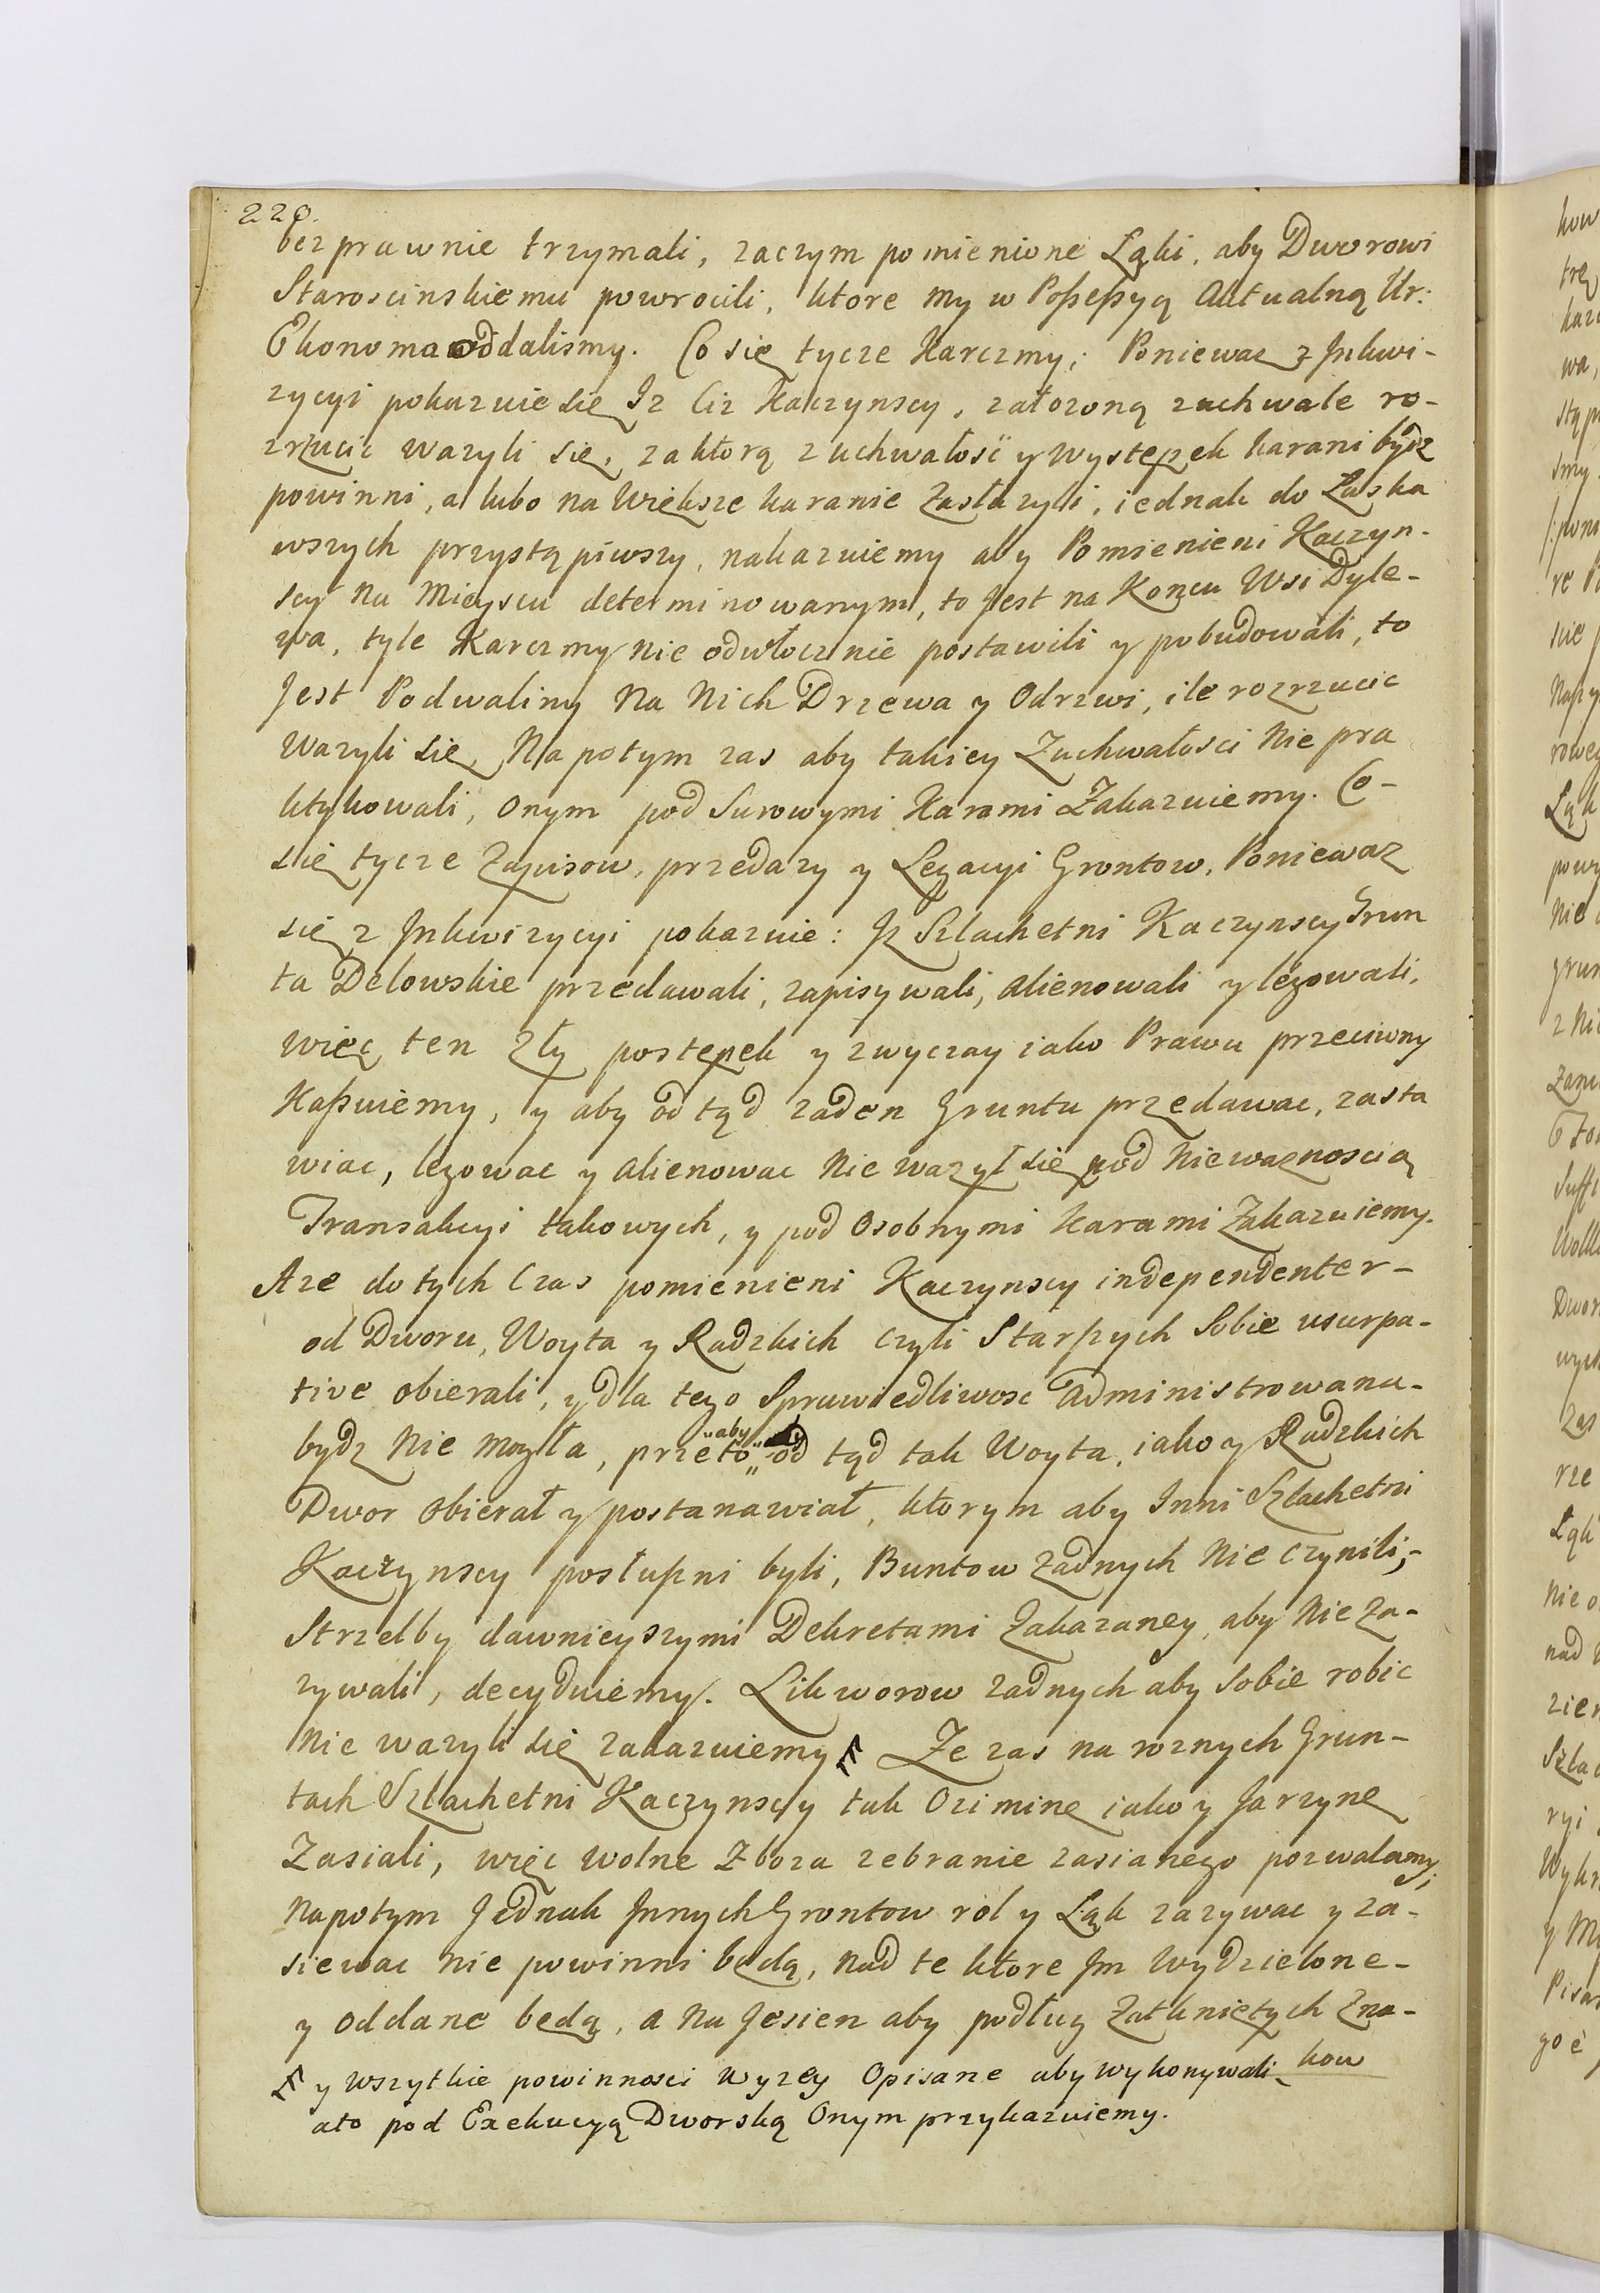 220.
bezprawnie trzymali, zaczym pomienione Łąki, aby Dworowi
Staroscinskiemu powrocili, ktore my w Poßeßyą Aktualną Ur:
Ekonoma oddalismy. Co się tycze Karczmy; Poniewaz z Inkwi-
zycyi pokazuie się Iz Ciz Kaczynscy, załozoną zuchwale ro-
zrzucic wazyli się, za ktorą zuchwałość y wystepek karani bydz
powinni, a lubo na Większe karanie Zasłuzyli, iednak do Łaska
wszych przystąpiwszy, nakazuiemy aby Pomienieni Kaczyn-
scy na Mieyscu determinowanym, to Jest na Koncu Wsi Dyle-
wa, tyle Karczmy nie odwłocznie postawili y pobudowali, to
Jest Podwaliny Na Nich Drzewa y Odrzwi, ile rozrzucic
Wazyli się, Na potym zas aby takiey Zuchwałosci Nie pra
ktykowali, Onym pod Surowymi Karami Zakazuiemy. Co-
się tycze Zapisow, przedazy y Legacyi Grontow, Poniewaz
się z Inkwizycyi pokazuie: Iz Szlachetni Kaczynscy Grun
ta Delowskie przedawali, zapisywali, alienowali y legowali,
więc ten Zły postępek y zwyczay iako Prawu przeciwny
Kaßuiemy, y aby od tąd zaden Gruntu przedawac, zasta
wiac, legowac y alienowac Nie wazył się pod Niewaznoscią
Transakcyi takowych, y pod Osobnymi Karami Zakazuiemy.
Aze do tych Czas pomienieni Kaczynscy independenter-
od Dworu, Woyta y Radzkich czyli Starszych Sobie usurpa-
tive obierali, y dla tego Sprawiedliwosc administrowana-
bydz Nie mogła, przeto "aby" od tąd tak Woyta, iako y Radzkich
Dwor obierał y postanawiał, ktorym aby Inni Szlachetni
Kaczynscy posłuszni byli, Buntow Zadnych Nie czynili;-
Strzelby dawnieyszymi Dekretami Zakazaney, aby Nie Za-
zywali, decyduiemy. Likworow zadnych aby Sobie robic
Nie wazyli się zakazuiemy Ze zas na roznych Grun-
tach Szlachetni Kaczynscy tak Ozimine iako y Jarzyne
Zasiali, więc wolne Zboza zebranie zasianego pozwalamy;
Napotym Jednak Innych Grontow rol y Łąk zazywac y za-
siewac nie powinni będą, nad te ktore Im Wydzielone-
y oddane będą, a Na Jesien aby podług Zatknietych Zna-
kow
y wszytkie powinnosci wyzey Opisane aby wykonywali
ato pod Exekucyą Dworską Onym przykazuiemy.